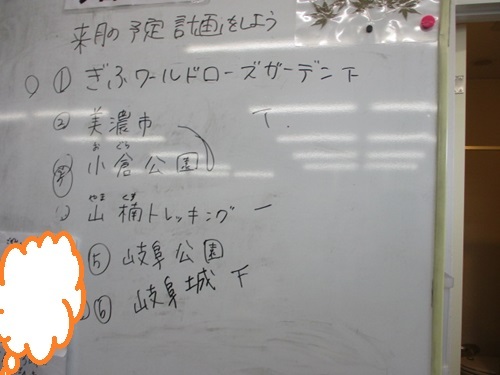 来月の予定計画をしよう
① ぎふワールドローズガーデン 下
② 美濃市 T.
小倉公園
おぐら
山楠トレッキング 一
やま くす
⑤ 岐阜公園
⑥ 岐阜城 下